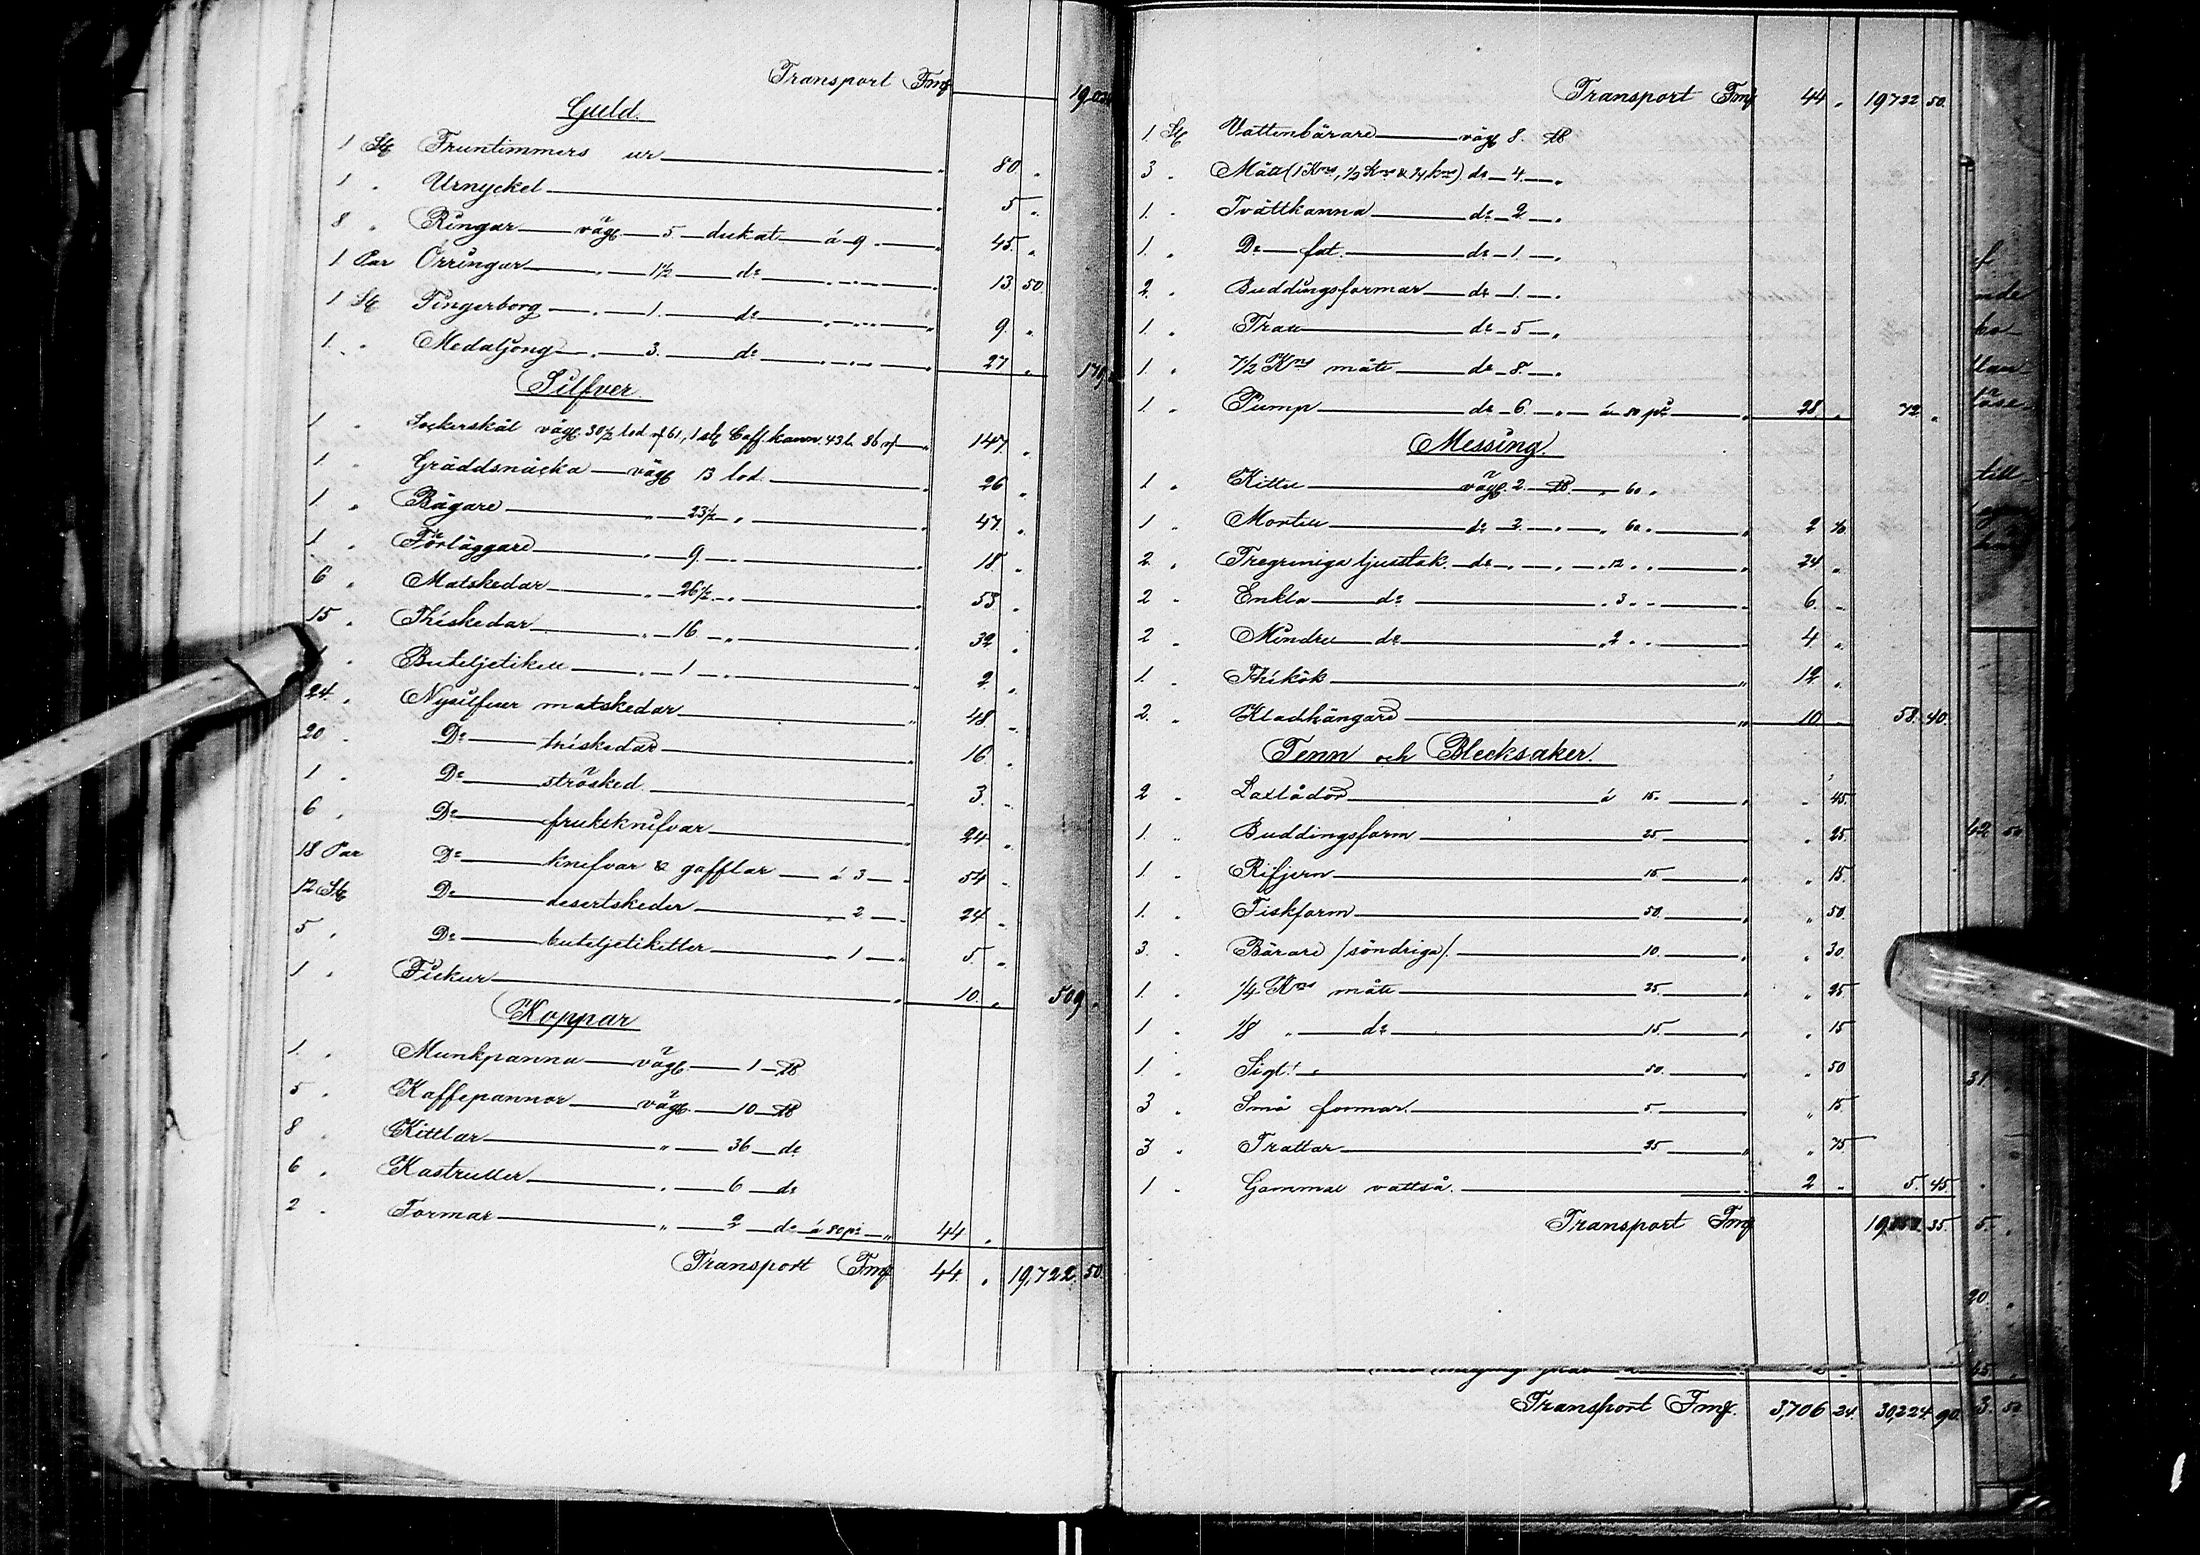 Transport Fmk
Guld.
1 St. Fruntimmers ur 80 "
1 " Urnyckel 5 "
8 " Ringar väg. 5 dukat á 9 " 45 "
1 Par Örringar " 1½ do " 13 50
1 St. Fingerborg " 1. do " 9 "
1. " Medaljong " 3. do " 27 "
Silfver
1 " Sockerskål väg. 30½ lod rf 61, 1 st. Caff. kann. 43 l. 86 rf 147 "
1. " Gräddsnäcka väg. 13 lod. " 26 "
1 " Bägare " 23½ " " 47 "
1 " Förläggare " 9 " " 18 "
6 " Matskedar " 26½ " " 53 "
15 " Théskedar " 16 " " 32 "
" Buteljetikett " 1 " 2 "
24 " Nysilfver matskedar " 48 "
20 " Do théskedar " 16 "
1 " Do strösked " 3 "
6 " Do fruktknifvar " 24 "
18 Par Do knifvar & gafflar á 3 " 54 "
12 St. Do desertskedar " 2 " 24 "
5 " Do buteljetiketter " 1 " 5 "
1 " Fickur " 10 " 509 "
Koppar
1. " Munkpanna väg. 1 ℔
5 " Kaffepannor väg. 10 ℔
8 " Kittlar " 36 do
6 " Kastruller " 6 do
2 " Formar " 2 do á 80 pi " 44 "
Transport Fmk 44 " 19,722 50
Transport Fmk 44 " 19722 50.
1 St. Vattenbärare väg. 8. ℔
3 " Mått (1 Kns, 1/2 Kns & 1/4 kns) do 4 "
1. " Tvättkanna do 2 "
1. " Do fat. do 1 "
2. " Buddingsformar do 1 "
1. " Tratt do 5 "
1. " 7½ Kns mått do 8. "
1. " Pump do 6 " á 80 pi " 28 " 72 "
Messing.
1 " Kittel väg. 2 ℔ " 60 "
1 " Mortel do 2 " " 60 " 2 40
2. " Tregreniga ljusstak. do " " 12 " " 24 "
2 " Enkla do " 3 " " 6 "
2 " Mindre do " 2 " " 4 "
1. " Thékök " 12 "
2. " Kladhängare " 10 " 58. 40.
Tenn och Blecksaker.
2 " Laxlådor á 15. " " 45.
1. " Buddingsform 25 " " 25.
1. " Rifjern 15 " " 15.
1. " Fiskform 50. " " 50.
3. " Bärare /söndriga/. 10. " " 30
1. " 1/4 Kns mått 25. " " 25
1 " 1/8 " do 15. " " 15
1 " Sigt. 50. " " 50
3 " Små formar. 5 " " 15
3 " Trattar 25 " " 75
1 " Gammal vattså. 2 " 5. 45.
Transport Fmk 35
Transport Fmk. 3,706 24. 30,224 90.